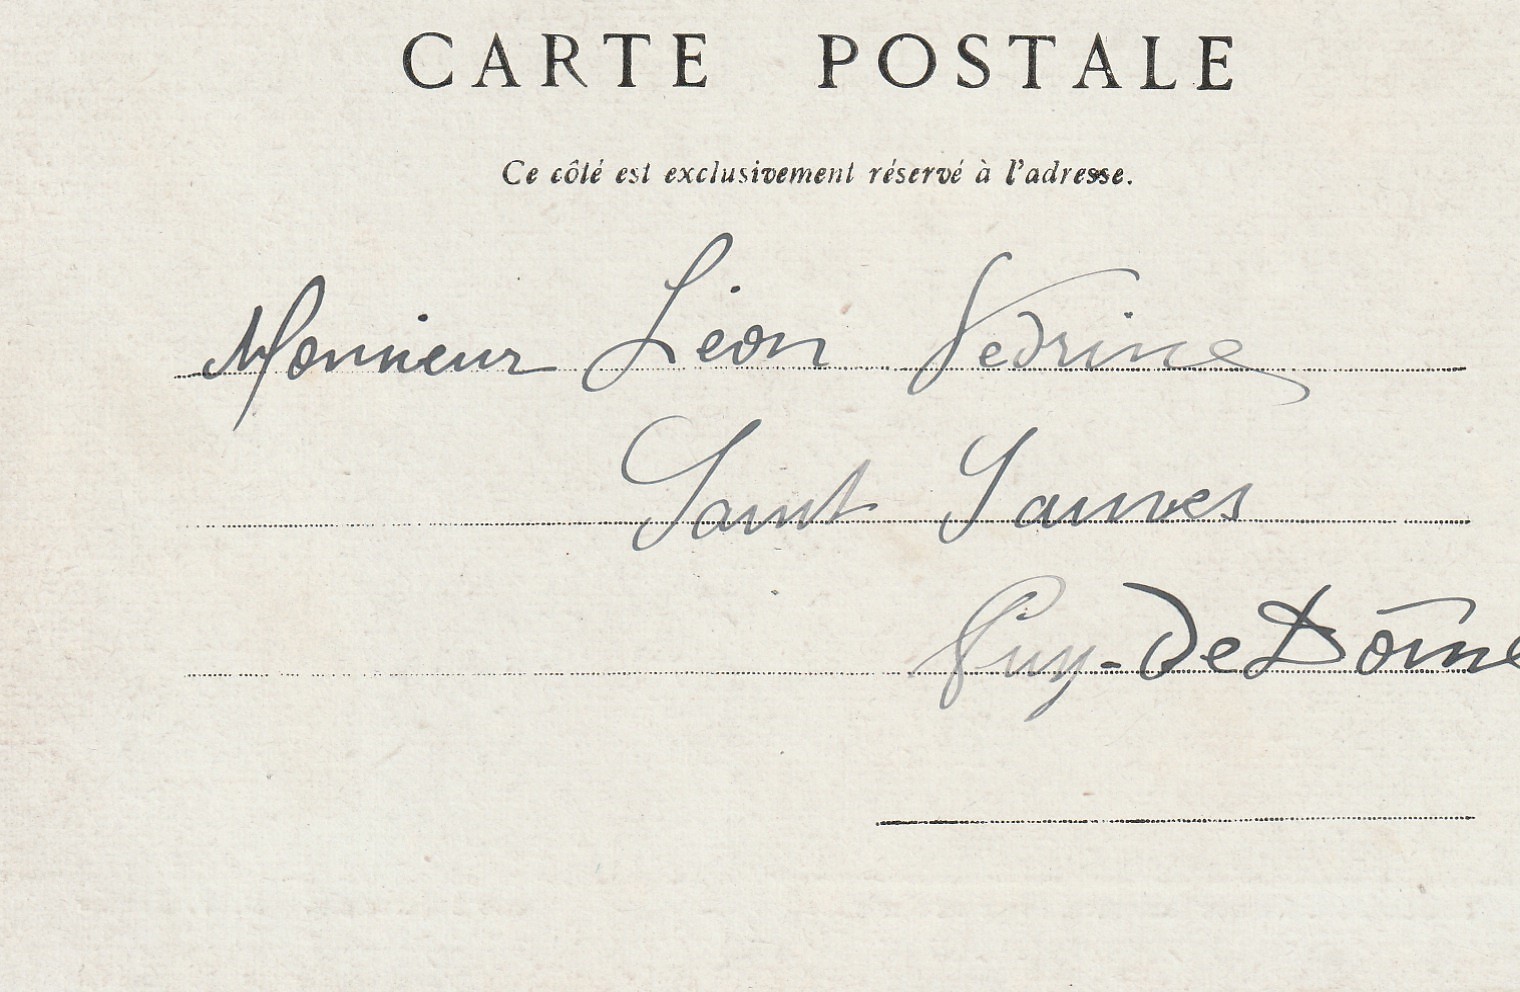 CARTE POSTALE
Ce côté est exclusivement réservé à l'adresse.
Monsieur Léon Vedrine
Saint Sauves
Puy-de Dôme